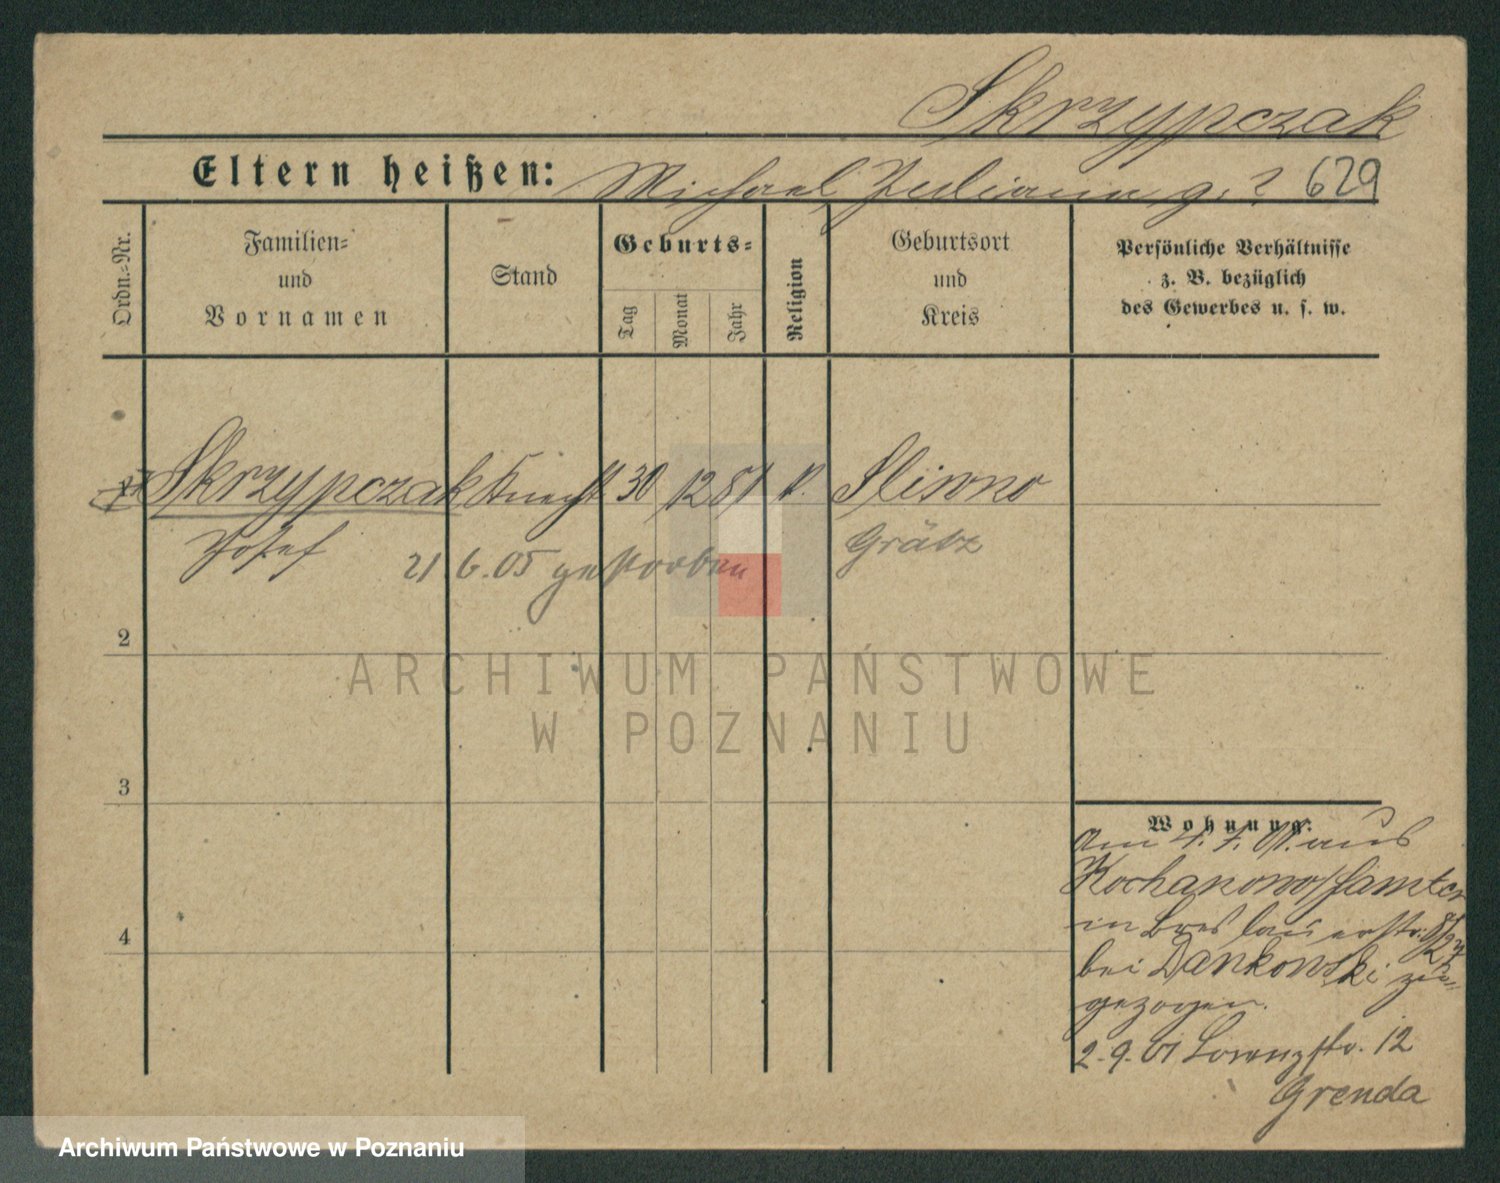 Skrzypczak
Eltern heißen: Michael Juliana g. ? 629
Ordn.=Nr.
Familien=
und
Vornamen
Stand
Geburts=
Tag
Monat
Jahr
Religion
Geburtsort
und
Kreis
Persönliche Verhältnisse
z. B. bezüglich
des Gewerbes u. s. w.
Skrzypczak Knecht 30 12 81 k. Sliwno
Josef 21.6.05 gestorben Grätz
2
3
4
ARCHIWUM PAŃSTWOWE
W POZNANIU
Wohnung:
Am 4. 7. 01. aus
Kochanowo/Samter
in Breslauerstr.
bei Dankowski zu=
gezogen.
2.9.01 Lorenzstr. 12
Grenda
Archiwum Państwowe w Poznaniu